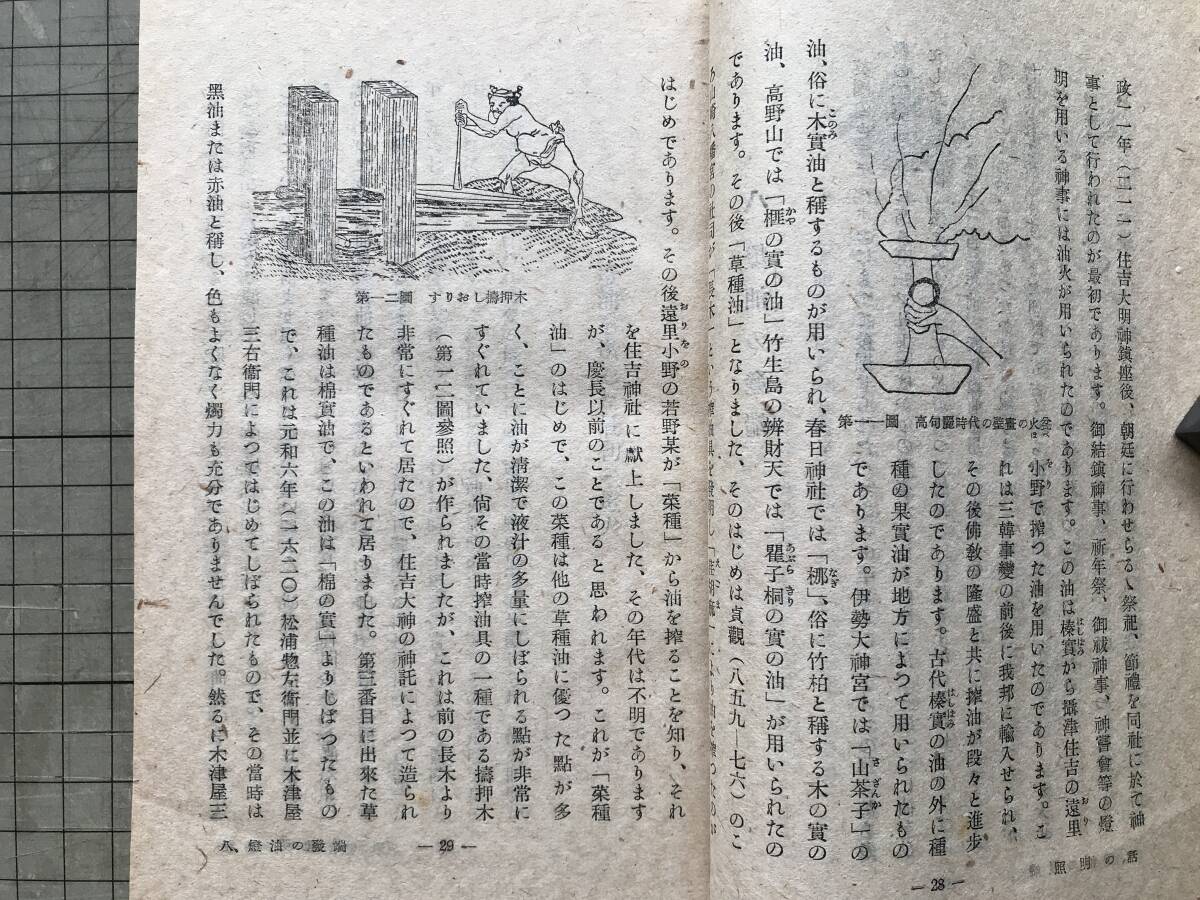 政一一年(二一一)住吉大明神鎭座後、朝廷に行わせらるゝ祭祀、節禮を同社に於て神
事として行われたのが最初であります。御結鎭神事、祈年祭、御祓神事、神嘗會等の燈
明を用いる神事には油火が用いられたのであります。この油は榛實から攝津住吉の遠里
小野で搾つた油を用いたのであります。こ
れは三韓事變の前後に我邦に輸入せられ、
その後佛敎の隆盛と共に搾油が段々と進歩
したのであります。古代榛實の油の外に種
種の果實油が地方によつて用いられたもの
であります。伊勢大神宮では「山茶子」の
油、俗に木實油と稱するものが用いられ、春日神社では「梛」、俗に竹柏と稱する木の實の
油、高野山では「榧の實の油」竹生島の辨財天では「罌子桐の實の油」が用いられたの
であります。その後「草種油」となりました、そのはじめは貞觀(八五九—七六)のこ
第一一圖 高句麗時代の壁畫の火盆
照明の話
— 28 —
はじめであります。その後遠里小野の若野某が「菜種」から油を搾ることを知り、それ
を住吉神社に獻上しました、その年代は不明であります
が、慶長以前のことであると思われます。これが「菜種
油」のはじめで、この菜種は他の草種油に優つた點が多
く、ことに油が清潔で液汁の多量にしぼられる點が非常に
すぐれていました、尙その當時搾油具の一種である擣押木
(第一二圖參照)が作られましたが、これは前の長木より
非常にすぐれて居たので、住吉大神の神託によつて造られ
たものであるといわれて居りました。第三番目に出來た草
種油は棉實油で、この油は「棉の實」よりしぼつたもの
で、これは元和六年(一六二〇)松浦惣左衞門並に木津屋
三右衞門によつてはじめてしぼられたもので、その當時は
黑油または赤油と稱し、色もよくなく燭力も充分でありませんでした。然るに木津屋三
第一二圖 すりおし擣押木
八、燈油の發端
— 29 —